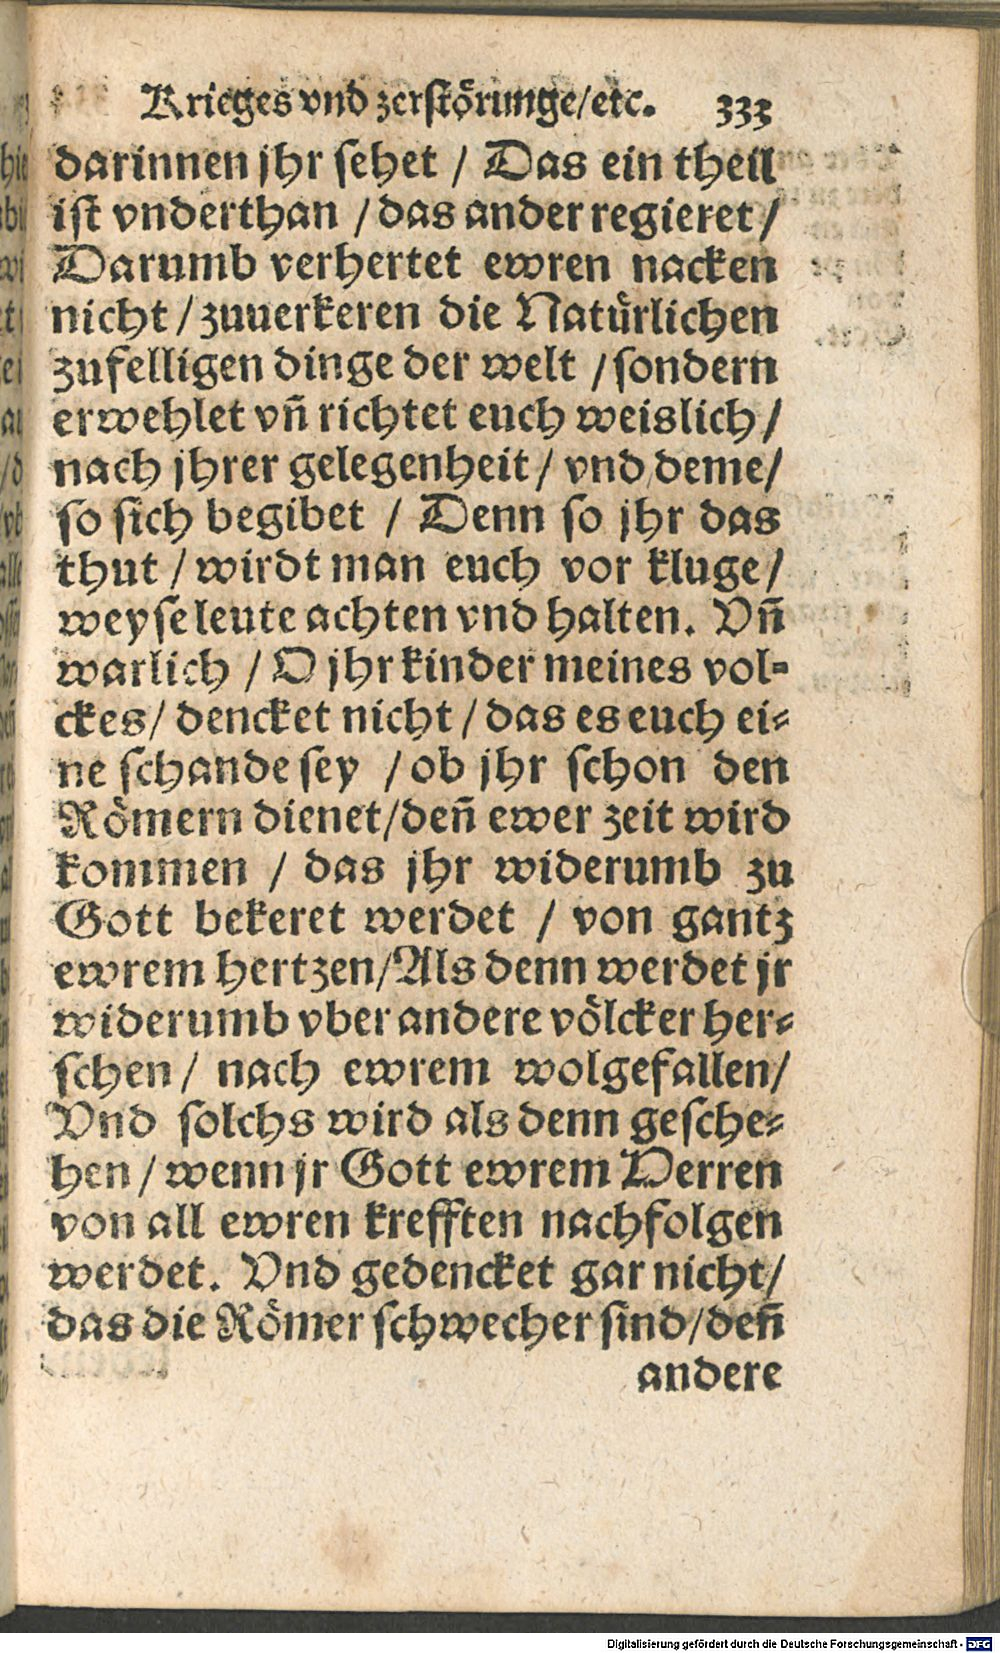 Krieges vnd zerstörunge/etc. 333
darinnen jhr sehet / Das ein theil
ist vnderthan / das ander regieret /
Darumb verhertet ewren nacken
nicht / zuuerkeren die Natürlichen
zufelligen dinge der welt / sondern
erwehlet vn̄ richtet euch weislich /
nach jhrer gelegenheit / vnd deme /
so sich begibet / Denn so jhr das
thut / wirdt man euch vor kluge /
weyse leute achten vnd halten. Vn̄
warlich / O jhr kinder meines vol-
ckes / dencket nicht / das es euch ei-
ne schande sey / ob jhr schon den
Römern dienet / den̄ ewer zeit wird
kommen / das jhr widerumb zu
Gott bekeret werdet / von gantz
ewrem hertzen / Als denn werdet jr
widerumb vber andere völcker her-
schen / nach ewrem wolgefallen /
Vnd solchs wird als denn gesche-
hen / wenn jr Gott ewrem Herren
von all ewren krefften nachfolgen
werdet. Vnd gedencket gar nicht /
das die Römer schwecher sind / den̄
andere
Digitalisierung gefördert durch die Deutsche Forschungsgemeinschaft - DFG